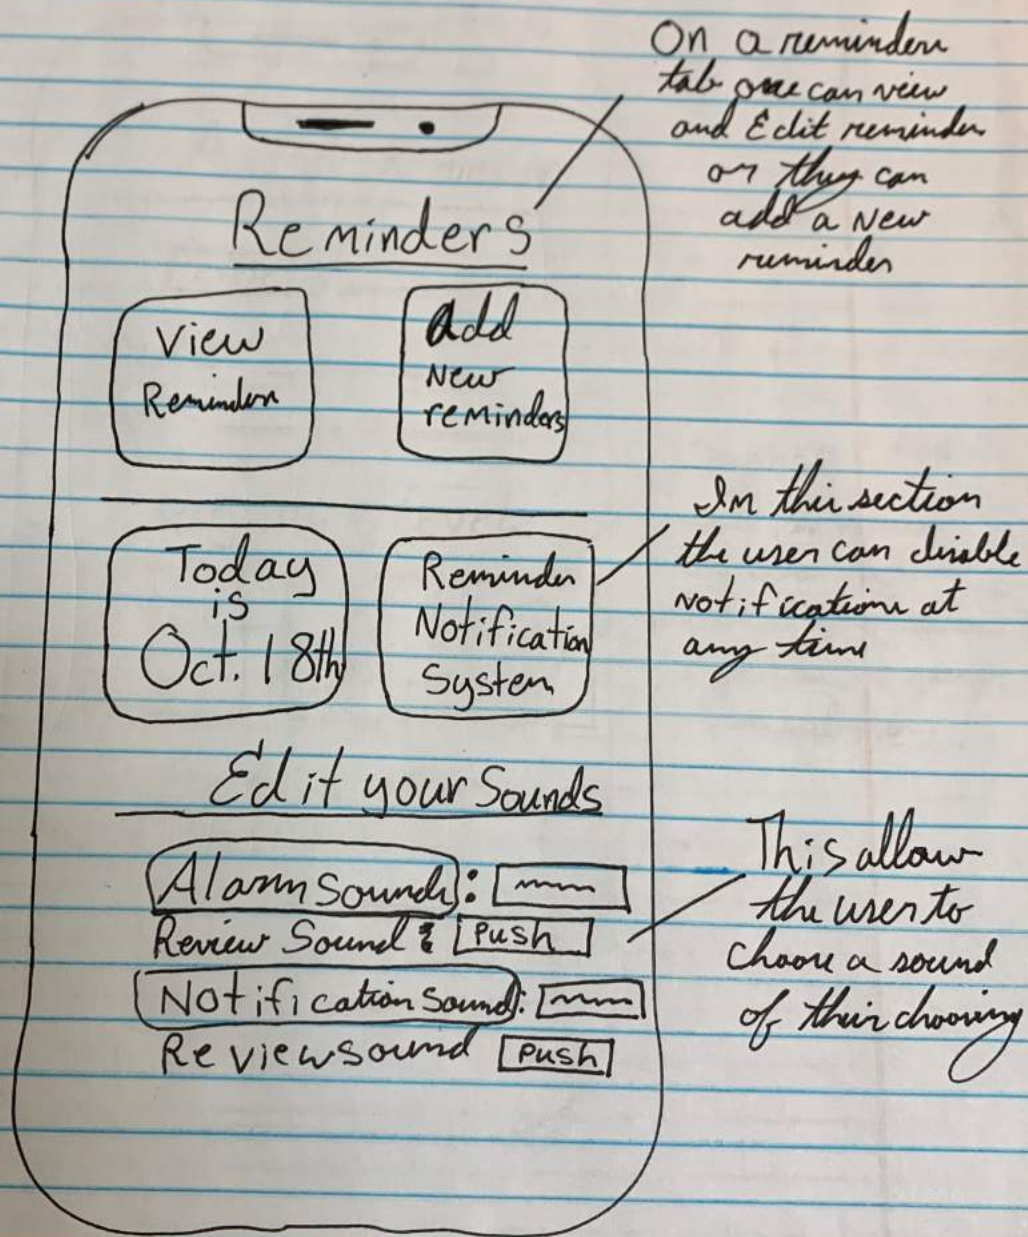 On a reminder
tab one can view
and Edit reminder
or they can
add a New
reminder
Reminders
View
Reminder
Add
New
reminders
In this section
the user can disable
Notifications at
any time
Today
is
Oct. 18th
Reminder
Notification
System
Edit your Sounds
Alarm Sounds:
Review Sound: Push
Notification Sound:
Review sound Push
This allow
the user to
Choose a sound
of their choosing